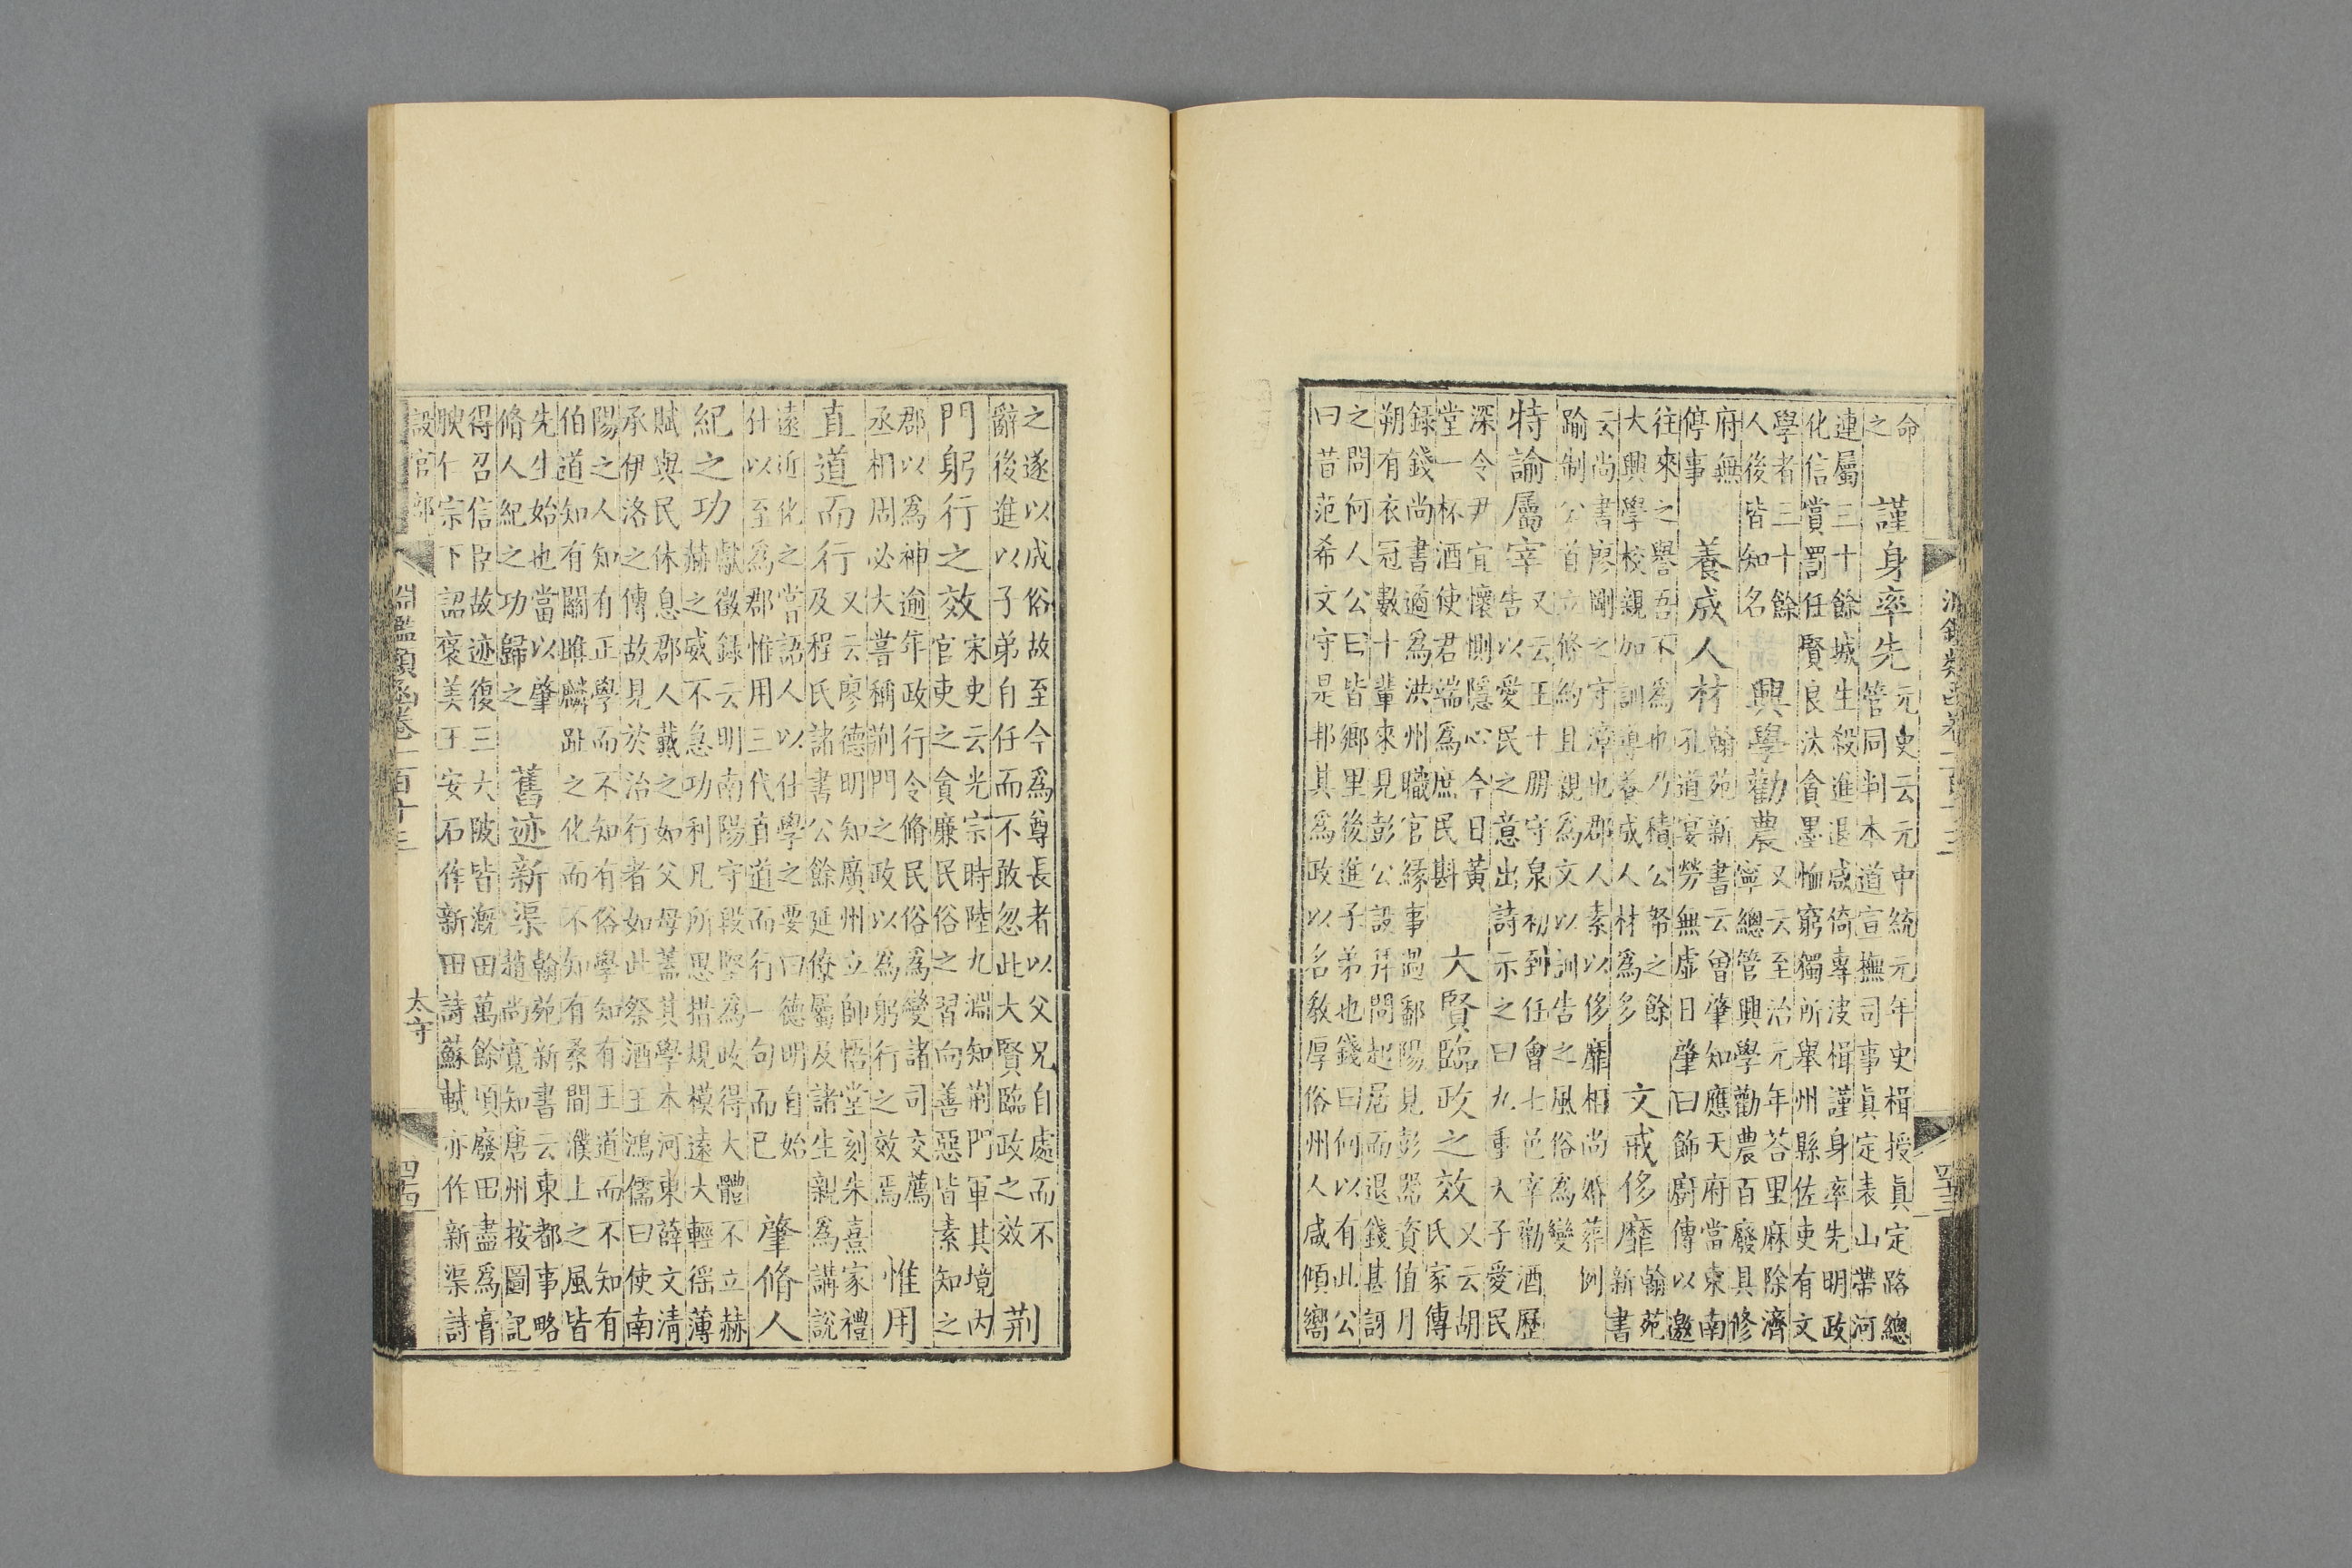 淵鑑類函卷一百十三 四十三
命
之
謹身率先
元史云元中統元年史楫授眞定路總
管同判本道宣撫司事眞定表山帶河
連屬三十餘城生殺進退咸倚專決楫謹身率先明政
化信賞罰任賢良汰貪墨恤窮獨所舉州縣佐吏有文
學者三十餘
人後皆知名
興學勸農
又云至治元年荅里麻除濟
寧總管興學勸農百廢具修
府無
停事
養成人材
翰苑新書云曾肇知應天府當東南
孔道宴勞無虛日肇曰飾廚傳以邀
往來之譽吾不爲也乃積公帑之餘
大興學校親如訓導養成人材爲多
文戒侈靡
翰苑
新書
云尚書廖剛之守漳也郡人素以侈靡相尚婚葬例
踰制公首立條約且親爲文以訓告之風俗爲變
特諭屬宰
又云王十朋守泉初到任會七邑宰勸酒歷
告以愛民之意出詩示之曰九重天子愛民
深令尹宜懷惻隱心今日黃
堂一杯酒使君端爲庶民斟
大賢臨政之效
又云胡
氏家傳
錄錢尚書遹爲洪州職官緣事過鄱陽見彭器資值月
朔有衣冠數十輩來見彭公設拜問起居而退錢甚訝
之問何人公曰皆鄉里後進子弟也錢曰何以有此公
曰昔范希文守是邦其爲政以名教厚俗州人咸傾嚮
之遂以成俗故至今爲尊長者以父兄自處而不
辭後進以子弟自任而不敢忽此大賢臨政之效
荆
門躬行之效
宋史云光宗時陸九淵知荆門軍其境內
官吏之貪廉民俗之習向善惡皆素知之
郡以爲神逾年政行令脩民俗爲變諸司交薦
丞相周必大嘗稱荆門之政以爲躬行之效焉
惟用
直道而行
又云廖德明知廣州立師悟堂刻朱熹家禮
及程氏諸書公餘延僚屬及諸生親爲講說
遠近化之嘗語人以仕學之要曰德明自始
仕以至爲郡惟用三代直道而行一句而已
肇脩人
紀之功
獻徵錄云明南陽守段堅爲政得大體不立赫
赫之威不急功利凡所思措規模遠大輕徭薄
賦與民休息郡人戴之如父母蓋其學本河東薛文淸
承伊洛之傳故見於治行者如此祭酒王鴻儒曰使南
陽之人知有正學而不知有俗學知有王道而不知有
伯道知有關雎麟趾之化而不知有桑間濮上之風皆
先生始也當以肇
脩人紀之功歸之
舊迹新渠
翰苑新書云東都事略
趙尚寬知唐州按圖記
得召信臣故迹復三大陂皆漑田萬餘頃廢田盡爲膏
腴仁宗下詔褒美王安石作新田詩蘇軾亦作新渠詩
設官部 淵鑑類函卷一百十三 太守 四十四